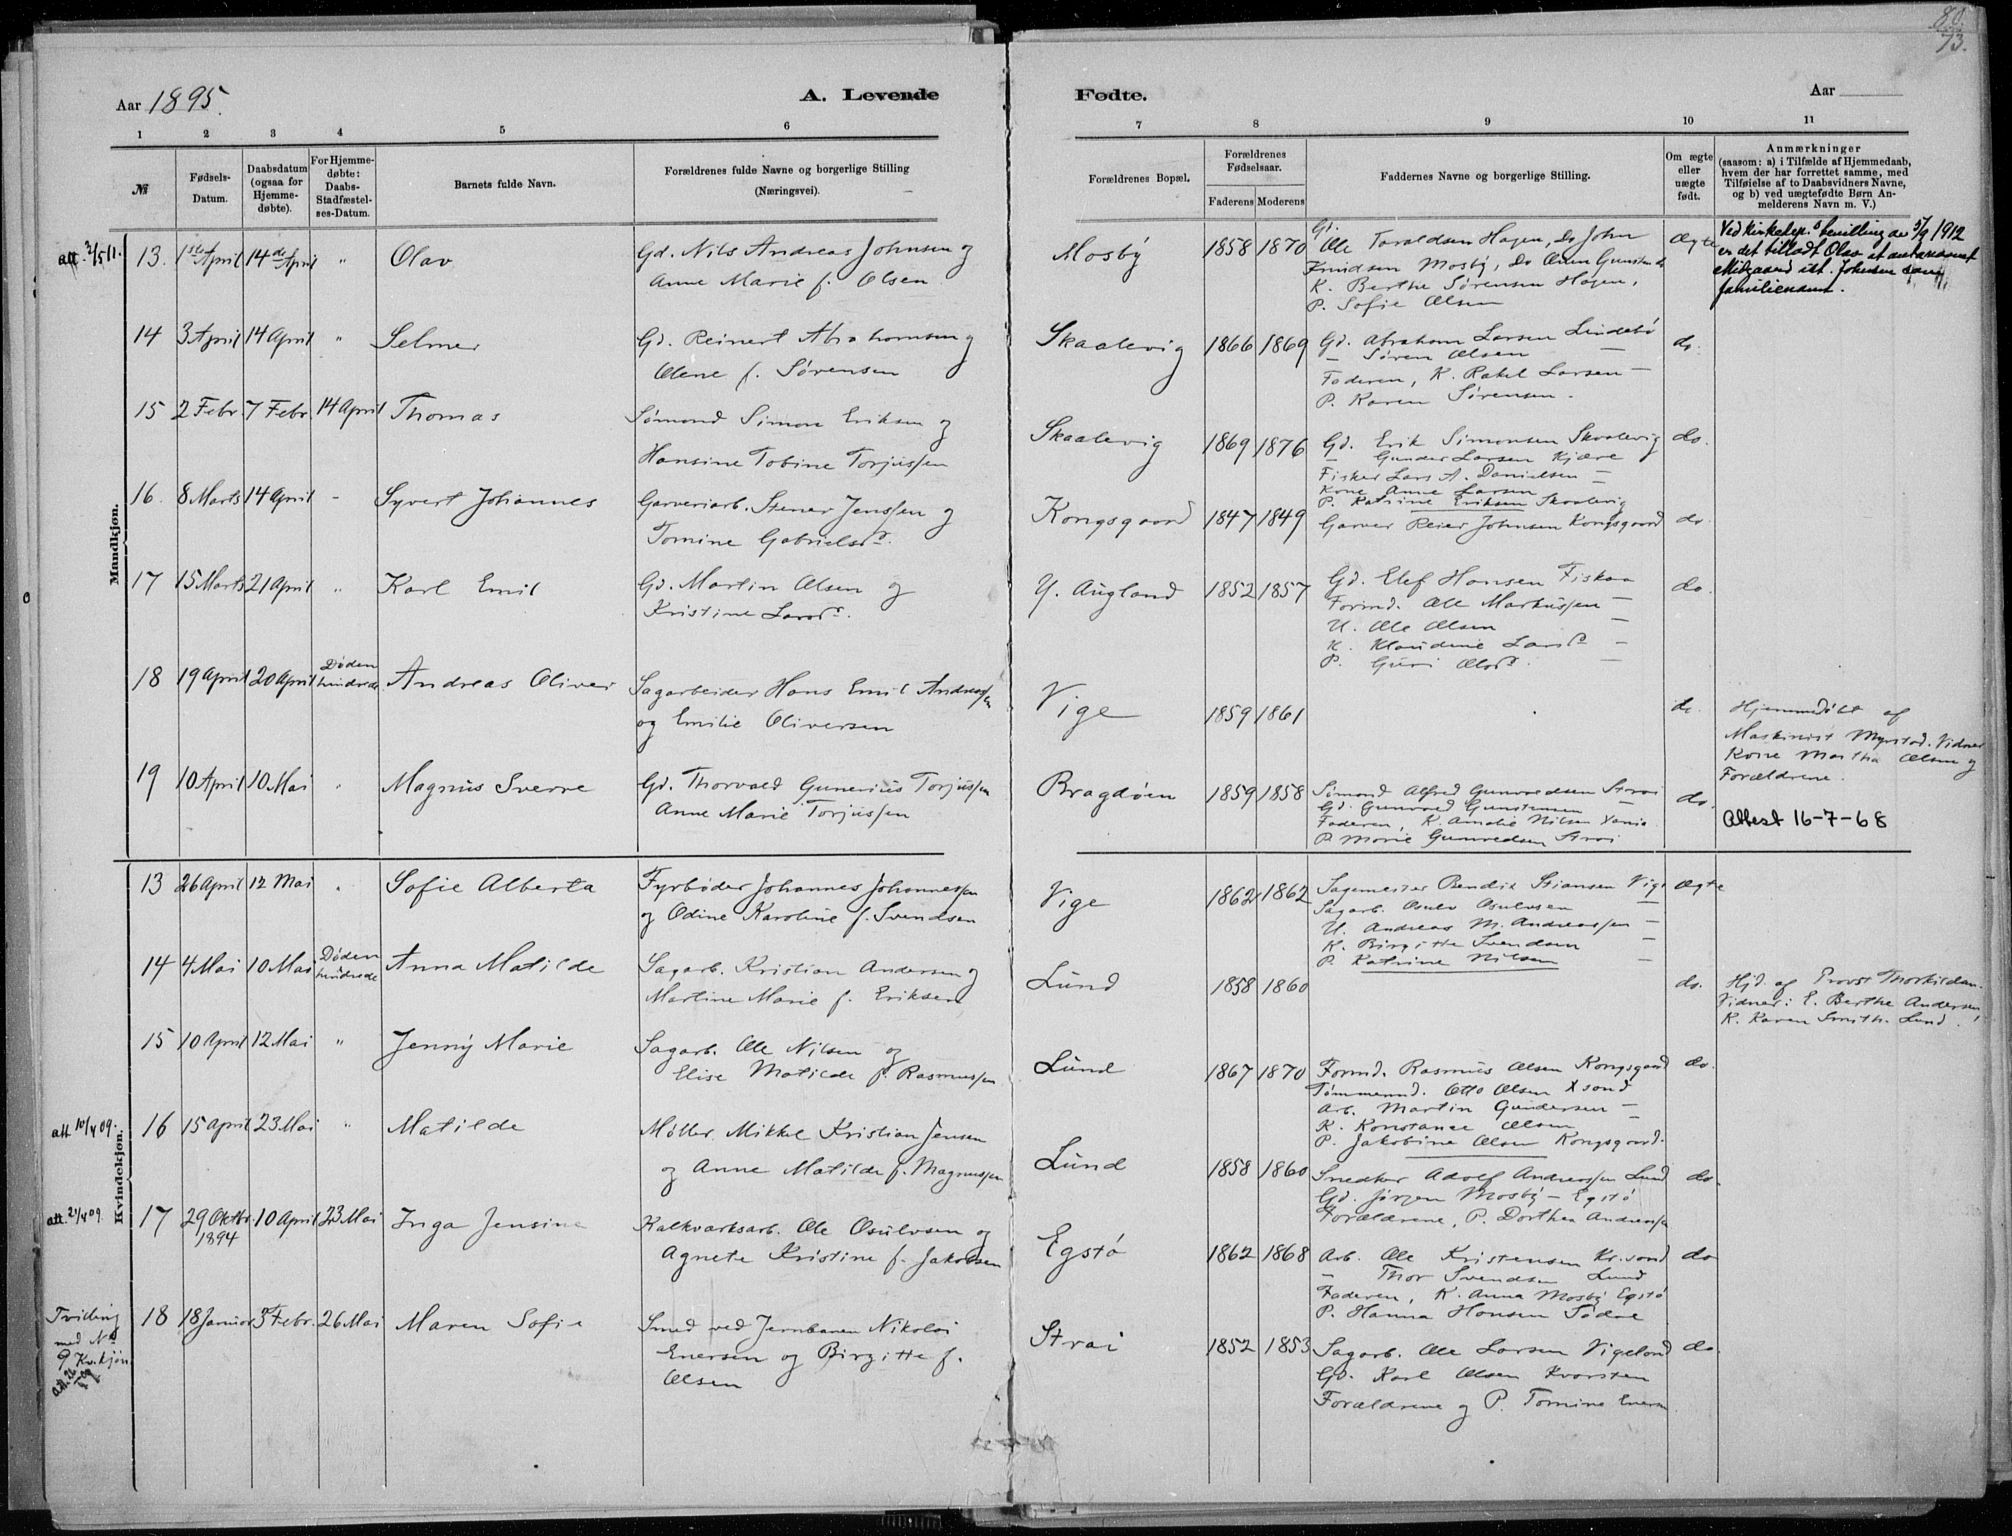 80.
73.
Aar 1895.
A. Levende
Fødte.
Aar
1 2 3 4 5 6 7 8 9 10 11
№
Fødsels-Datum.
Daabsdatum (ogsaa for Hjemme-døbte).
For Hjemme-døbte: Daabs-Stadfæstel-ses-Datum.
Barnets fulde Navn.
Forældrenes fulde Navne og borgerlige Stilling (Næringsvei).
Forældrenes Bopæl.
Forældrenes Fødselsaar.
Faderens Moderens
Faddernes Navne og borgerlige Stilling.
Om ægte eller uægte født.
Anmærkninger
(saasom: a) i Tilfælde af Hjemmedaab,
hvem der har forrettet samme, med
Tilføielse af to Daabsvidners Navne,
og b) ved uægtefødte Børn An-
melderens Navn m. V.)
Mandkjøn.
att. 3/5 11.
13. 1ste April 14de April " Olav
Gd. Nils Andreas Johnsen og
Anne Marie f. Olsen
Mosby 1858 1870
Gd.
Ole Taraldsen Hagen, Do John
Knudsen Mosby, Do
K. Berthe Sørensen Hagen,
P. Sofie Olsen
Ægte
Ved kirkedep.s bevilling av 5/9 1912
er det tilladt Olav at anta navnet
Midgaard ist. Johnsen som
familienavn.
14 3 April 14 April " Selmer
Gd. Reinert Abrahamsen og
Olene f. Sørensen
Skaalevig 1866 1869
Gd. Abraham Larsen Lindebø
— Søren Olsen —
Faderen, K. Rakel Larsen —
P. Karen Sørensen.
do.
15 2 Febr. 7 Febr. 14 April Thomas
Sømand Simon Eriksen og
Hansine Tobine Torjussen
Skaalevig 1869 1876
Gd. Erik Simonsen Skaalevig
— Gunder Larsen Kjære
Fisker Lars A. Danielsen —
Kone Anne Larsen
P. Katrine Eriksen Skaalevig
do.
16. 8 Marts 14 April - Syvert Johannes
Garveriarb. Stener Jenssen og
Tomine Gabrielsd.
Kongsgaard 1847 1849
Garver Reier Johnsen Kongsgaard
do.
17 15 Marts 21 April " Karl Emil
Gd. Martin Olsen og
Kristine Larsd.
Y. Augland 1852 1857
Gd. Elef Hansen Fiskaa
Formd. Ole Markussen —
U. Ole Olsen —
K. Klaudine Larsd. —
P. Guri Olsd. —
do.
18 19 April 20 April Døden hindrede Andreas Oliver
Sagarbeider Hans Emil Andreassen
og Emilie Oliversen
Vige 1859 1861
do.
Hjemmedøbt af
Maskinist Myrstad. Vidner
Kone Martha Olsen og
Forældrene.
19 10 April 10 Mai " Magnus Sverre
Gd. Thorvald Gunerius Torjussen
Anne Marie Torjussen
Bragdøen 1859 1858
Sømand Alfred Gunvaldsen Strai
Gd. Gunvald Gunstensen —
Faderen, K. Amalie Nilsen Xania
P. Marie Gunvaldsen Strai
do.
Attest 16-7-68
Kvindekjøn.
13 26 April 12 Mai " Sofie Alberta
Fyrbøder Johannes Johannessen
og Odine Karoline f. Svendsen
Vige 1862 1862
Sagmester Bendik Stiansen Vige
Sagarb. Osulv Osulvsen —
U. Andreas M. Andreassen —
K. Birgitte Svendsen —
P. Katrine Nilsen —
Ægte
14 4 Mai 10 Mai Døden hindrede Anna Matilde
Sagarb. Kristian Andersen og
Martine Marie f. Eriksen
Lund 1858 1860
do.
Hjd. af Provst Thorkildsen.
Vidner: E. Berthe Andersen,
K. Karen Smith. Lund.
15 10 April 12 Mai " Jenny Marie
Sagarb. Ole Nilsen og
Elise Matilde f. Rasmussen
Lund 1867 1870
Formd. Rasmus Olsen Kongsgaard
Tømmermd. Otto Olsen Xsand
Arb. Martin Gundersen —
K. Konstance Olsen —
P. Jakobine Olsen Kongsgaard.
do.
att 10/4 09.
16 15 April 23 Mai " Matilde
Møller Mikkel Kristian Jensen
og Anne Matilde f. Magnussen
Lund 1858 1860
Snedker Adolf Andreassen Lund
Gd. Jørgen Mosby — Egstø
Forældrene, P. Dorthea Andreassen
do.
att. 21/4 09.
17 29 Oktbr. 1894 10 April 23 Mai Inga Jensine
Kalkværksarb. Ole Osulvsen og
Agnete Kristine f. Jakobsen
Egstø 1862 1868
Arb. Ole Kristensen Kr.sand
— Thor Svendsen Lund
Faderen, K. Anna Mosby Egstø
P. Hanna Hansen Sødne
do
Tvilling
med №
9 Kv.kjøn
18 18 Januar 3 Febr. 26 Mai Maren Sofie
Smed ved Jernbanen Nikolai
Enersen og Birgitte f.
Olsen
Strai 1852 1853
Sagarb. Ole Larsen Vigeland
Gd. Karl Olsen Kvarsten
Forældrene og P. Tomine Enersen
do.